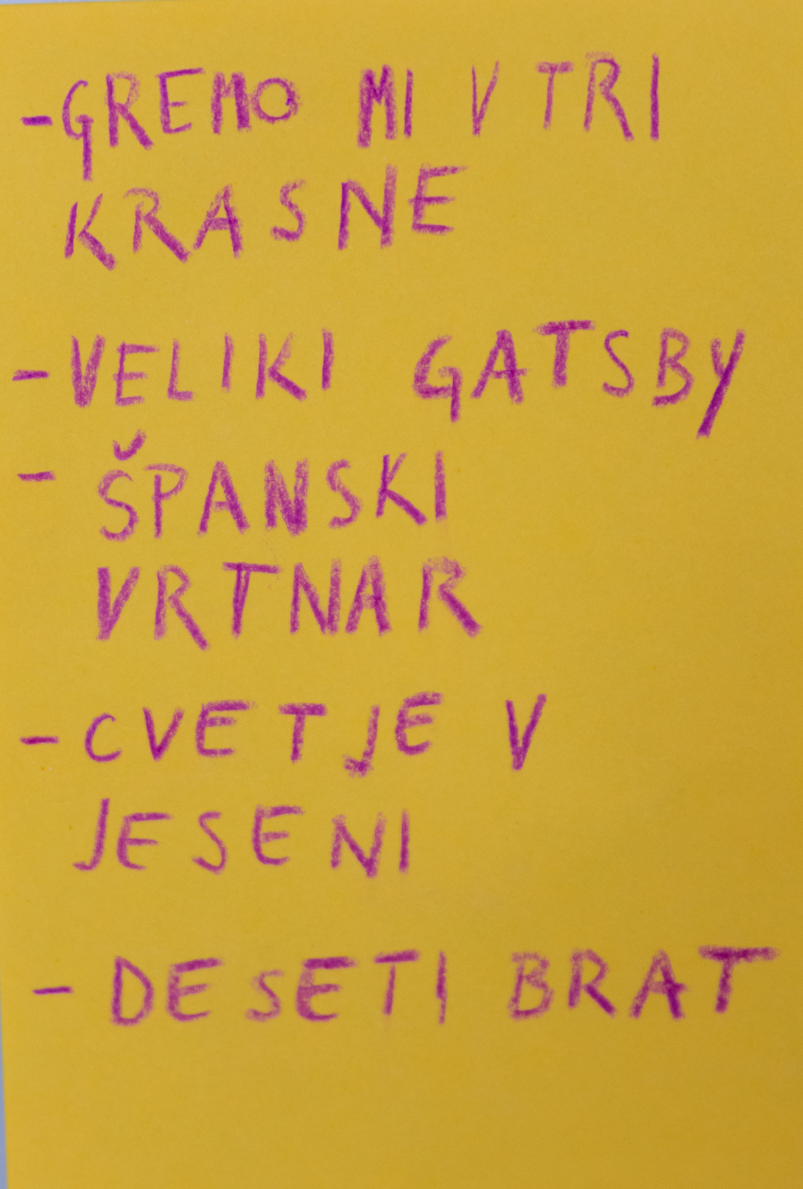 -GREMO MI V TRI
KRASNE
-VELIKI GATSBY
- ŠPANSKI
VRTNAR
-CVETJE V
JESENI
- DESETI BRAT